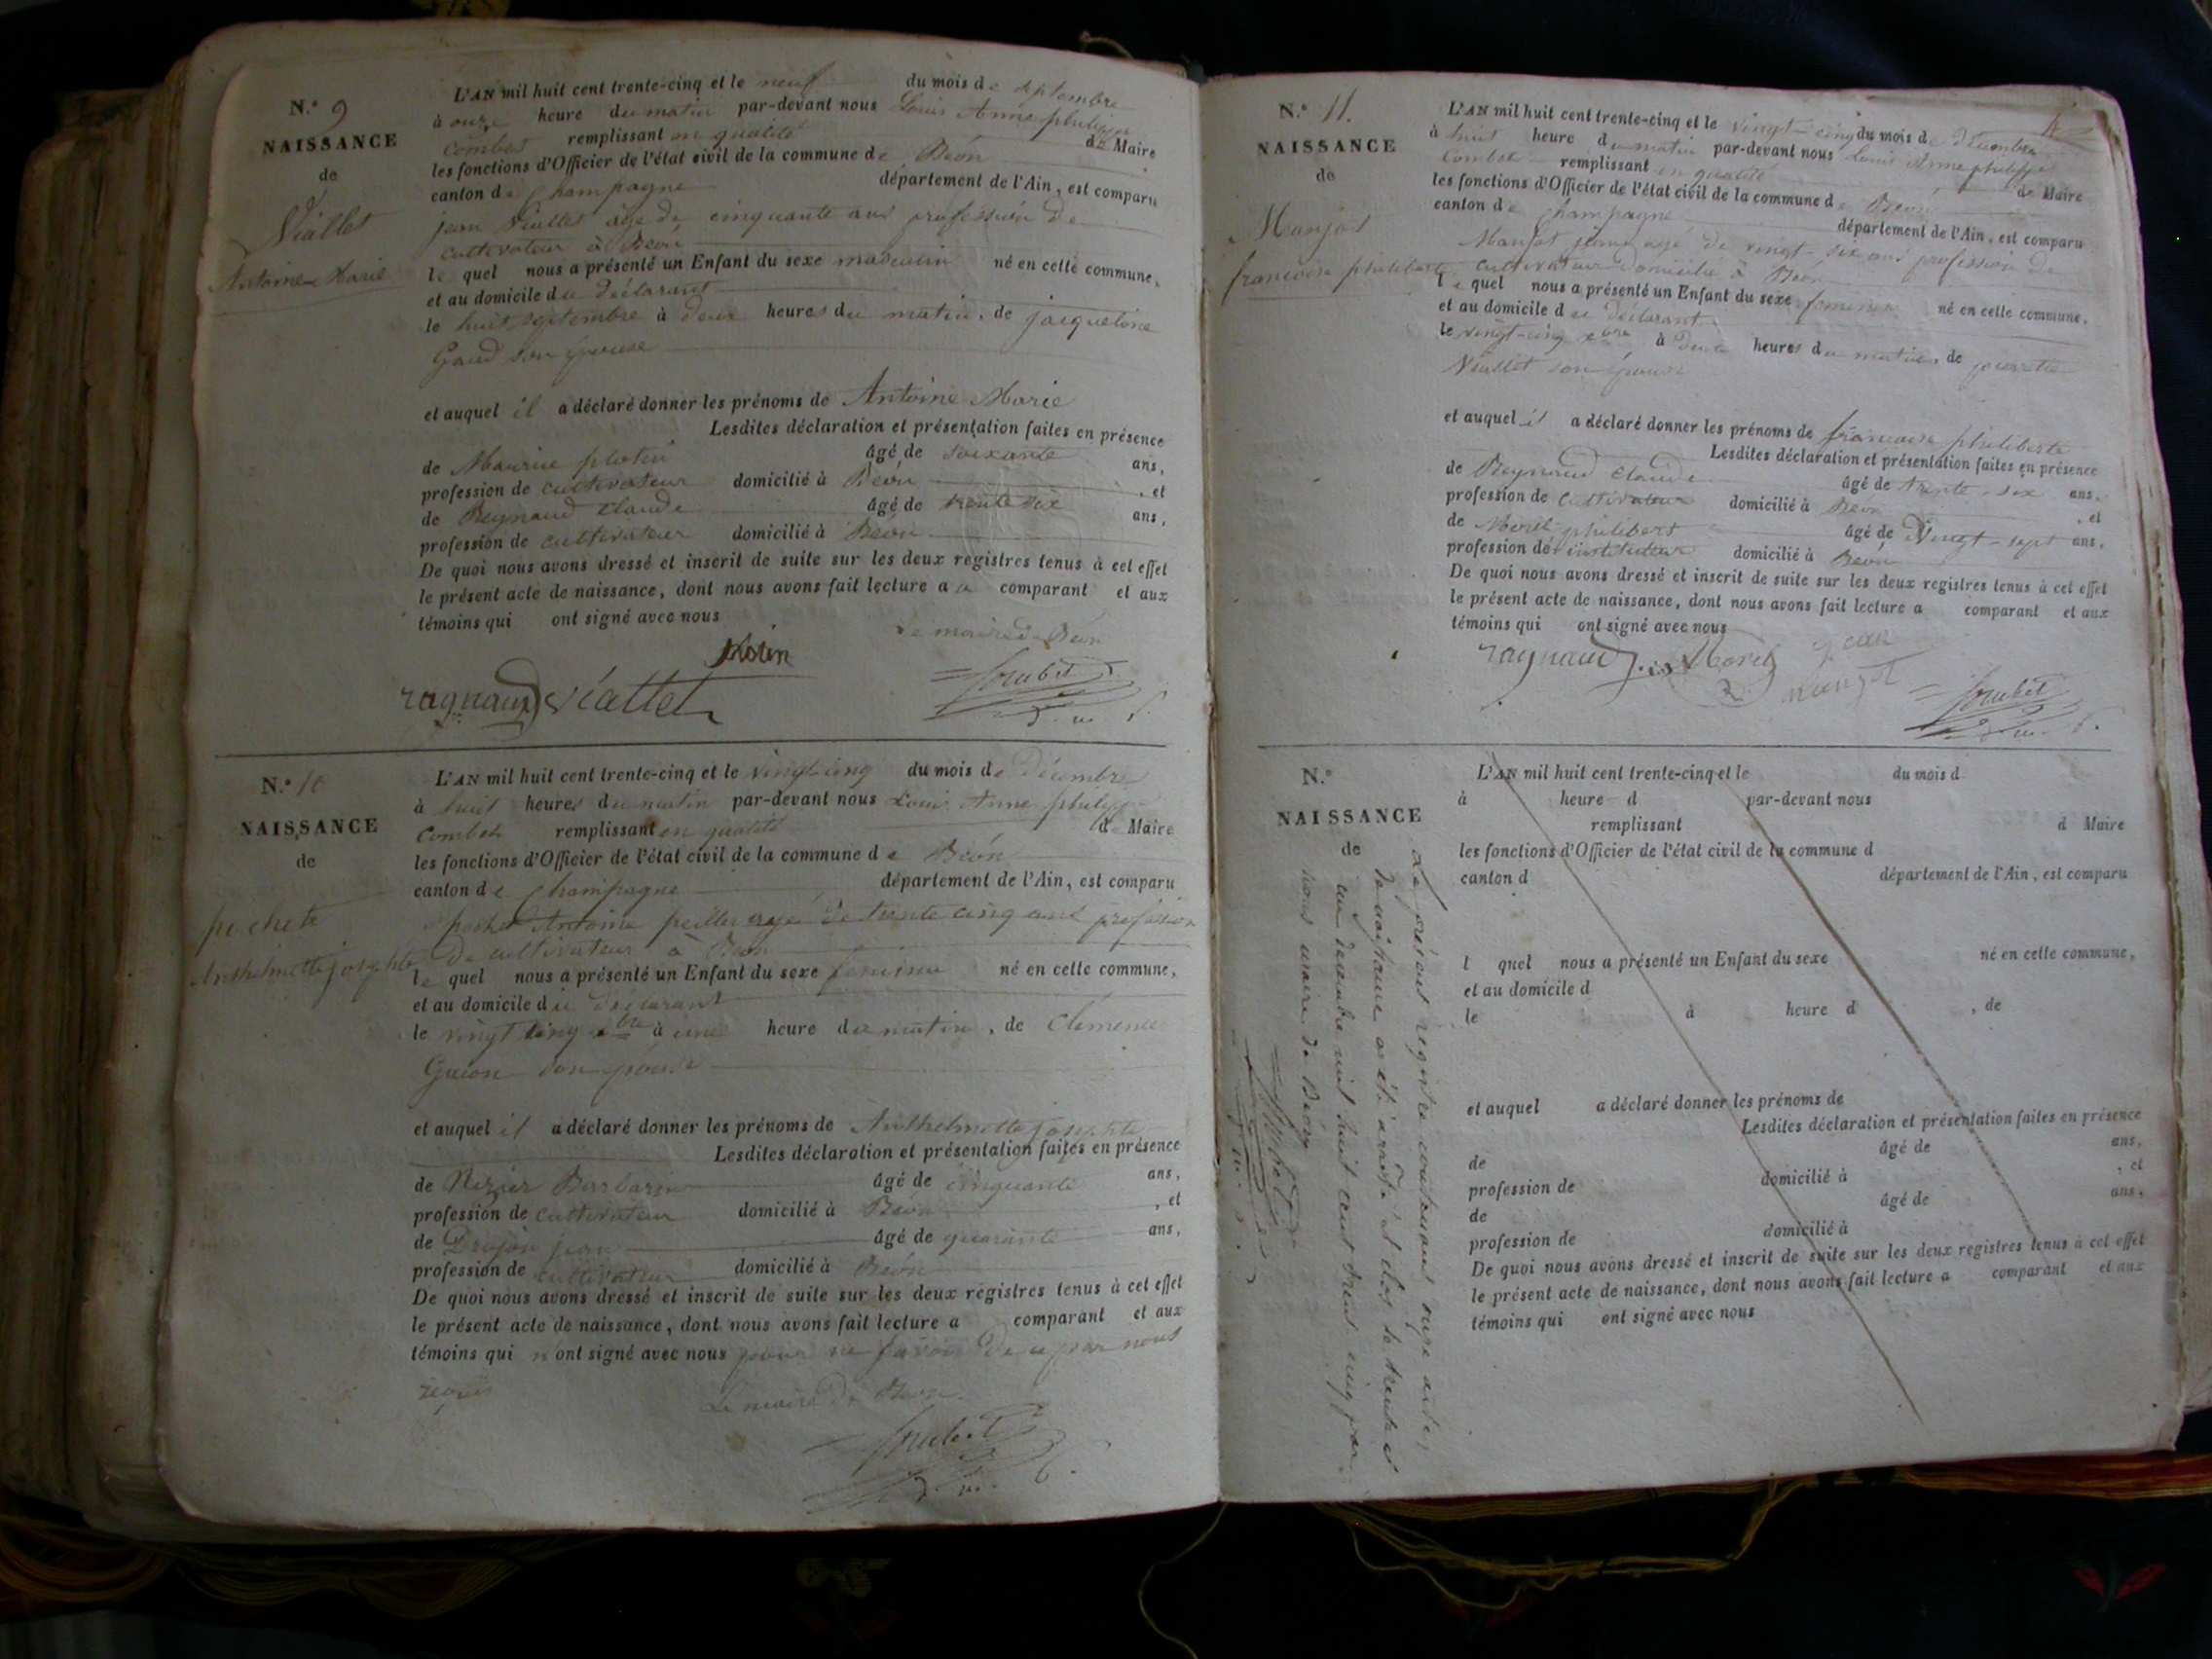 N.° 9
NAISSANCE
de
Viallet
Antoine Marie
L'AN mil huit cent trente-cinq et le neuf du mois de septembre
à onze heure du matin par-devant nous Louis Anne philippe
Combet remplissant en qualité de Maire
les fonctions d'Officier de l'état civil de la commune de Béon
canton de Champagne département de l'Ain, est comparu
jean Viallet âgé de cinquante ans profession de
cultivateur à Béon
le quel nous a présenté un Enfant du sexe masculin né en celle commune,
et au domicile du déclarant
le huit septembre à deux heures du matin, de jacqueline
son épouse
et auquel il a déclaré donner les prénoms de Antoine Marie
Lesdites déclaration et présentation faites en présence
de Maurice âgé de soixante ans,
profession de cultivateur domicilié à Béon, et
de Reynaud Claude âgé de trente six ans,
profession de cultivateur domicilié à Béon
De quoi nous avons dressé et inscrit de suite sur les deux registres tenus à cet effet
le présent acte de naissance, dont nous avons fait lecture au comparant et aux
témoins qui ont signé avec nous
Le maire de Béon
ragnaud Viallet
N.° 10
NAISSANCE
de
pochet
Anthelmette josephte
L'AN mil huit cent trente-cinq et le vingt cinq du mois de décembre
à huit heures du matin par-devant nous Louis Anne philippe
Combet remplissant en qualité de Maire
les fonctions d'Officier de l'état civil de la commune de Béon
canton de Champagne département de l'Ain, est comparu
pochet Antoine agé de trente cinq ans profession
de cultivateur à Béon
le quel nous a présenté un Enfant du sexe feminin né en celle commune,
et au domicile du déclarant
le vingt cinq xbre à une heure du matin, de Clémence
son épouse
et auquel il a déclaré donner les prénoms de Anthelmette josephte
Lesdites déclaration et présentation faites en présence
de Nizier Barbarin âgé de cinquante ans,
profession de cultivateur domicilié à Béon, et
de jean âgé de quarante ans,
profession de cultivateur domicilié à Béon
De quoi nous avons dressé et inscrit de suite sur les deux registres tenus à cet effet
le présent acte de naissance, dont nous avons fait lecture a comparant et aux
témoins qui n'ont signé avec nous pour ne savoir de ce par nous
requis
Le maire de Béon
N.° 11.
NAISSANCE
de
Manjot
francoise philiberte
L'AN mil huit cent trente-cinq et le vingt-cinq du mois de décembre
à huit heure du matin par-devant nous Louis Anne philippe
Combet remplissant en qualité de Maire
les fonctions d'Officier de l'état civil de la commune de Béon
canton de Champagne département de l'Ain, est comparu
Manjot jean agé de vingt-six ans profession de
cultivateur domicilié à Béon
le quel nous a présenté un Enfant du sexe feminin né en celle commune,
et au domicile du déclarant
le vingt-cinq xbre à deux heures du matin, de pierrette
Viallet son épouse
et auquel il a déclaré donner les prénoms de francoise philiberte
Lesdites déclaration et présentation faites en présence
de Reynaud Claude âgé de trente-six ans,
profession de cultivateur domicilié à Béon, et
de Morel philibert âgé de Vingt-sept ans,
profession de instituteur domicilié à Béon
De quoi nous avons dressé et inscrit de suite sur les deux registres tenus à cet effet
le présent acte de naissance, dont nous avons fait lecture a comparant et aux
témoins qui ont signé avec nous
ragnaud Morel jean
N.°
NAISSANCE
de
Le présent registre contenant onze actes
de naissance a été arrêté et clos le trente et
un decembre mil huit cent trente cinq par
nous maire de Béon
L'AN mil huit cent trente-cinq et le du mois d
à heure d par-devant nous
remplissant d Maire
les fonctions d'Officier de l'état civil de la commune d
canton d département de l'Ain, est comparu
l quel nous a présenté un Enfant du sexe né en celle commune,
et au domicile d
le à heure d , de
et auquel a déclaré donner les prénoms de
Lesdites déclaration et présentation faites en présence
de âgé de ans,
profession de domicilié à , et
de âgé de ans,
profession de domicilié à
De quoi nous avons dressé et inscrit de suite sur les deux registres tenus à cet effet
le présent acte de naissance, dont nous avons fait lecture a comparant et aux
témoins qui ont signé avec nous